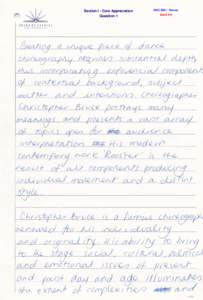 Section I - Core Appreciation
Question 1
Creating a unique piece of dance
choreography requires substantial depth
thus incorporating exponential components
of contextual background, subject
matter and intentions. Choreographer
Christopher Bruce portrays many
meanings and presents a vast array
of topics open for audience
interpretation. His modern
contemporary work Rooster is the
result of all components producing
individual movement and a distinct
style.
Christopher Bruce is a famous choreographer
renowned for his individuality
and originality. His ability to bring
to the stage social, cultural, political
and emotional issues of present
and past day and age illuminates
the extent of complexities and